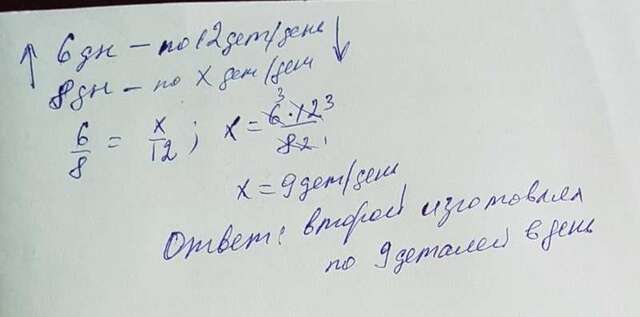 ↑ 6 дн – по 12 дет/день ↓
8 дн – по x дет/ден
6/8 = x/12 ; x = 6·12/8
3 3 2
x = 9 дет/день
Ответ: второй изготовлял
по 9 деталей в день